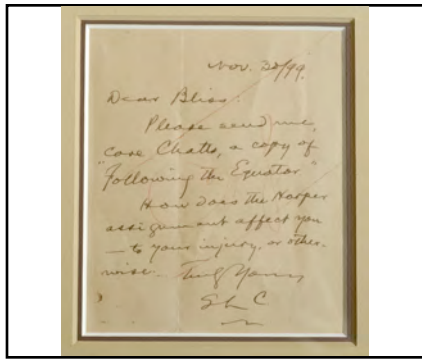 Nov. 30/99.
Dear Bliss:
Please send me,
"care Chatto, a copy of
Following the Equator."
How does the Harper
assignment affect you
— to your injury, or other-
wise. Truly Yours,
SL C